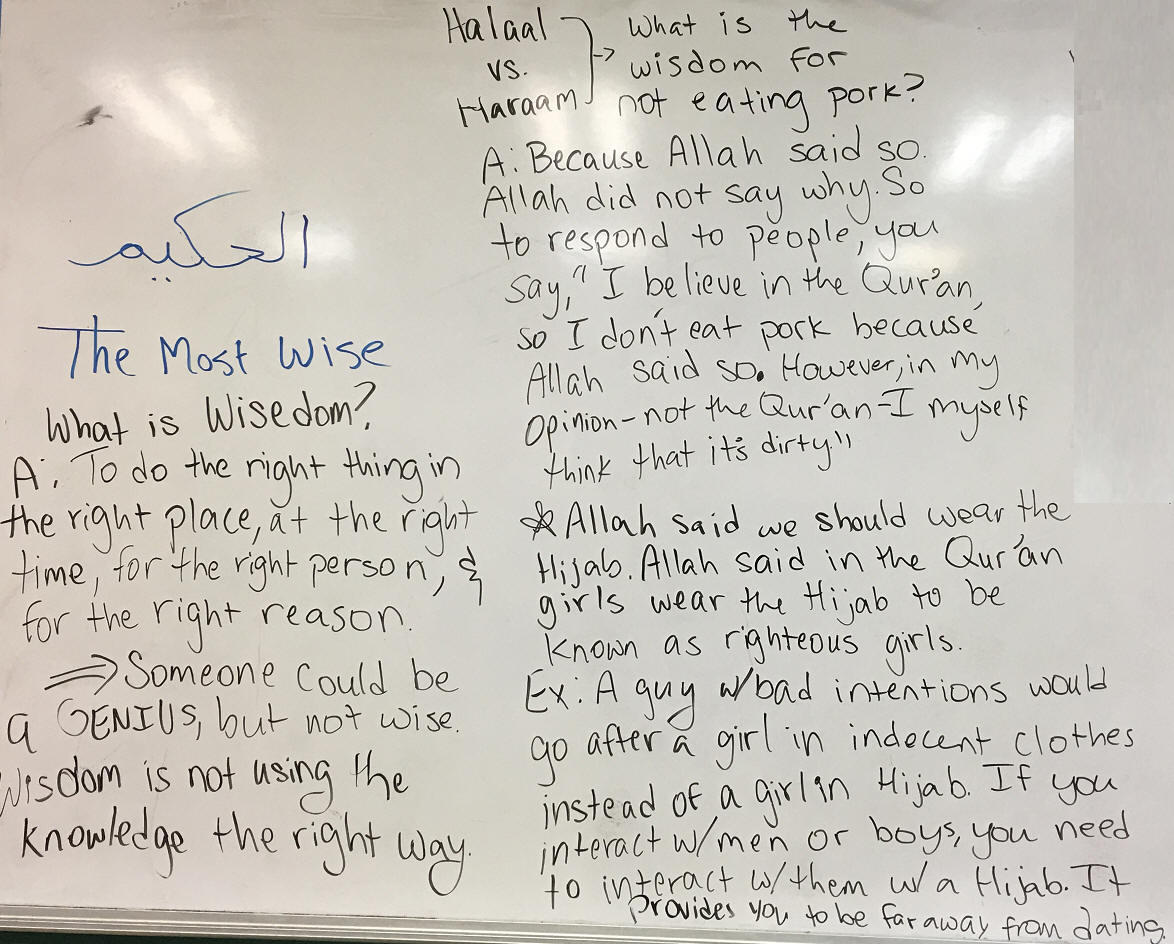 الحكيم
The Most Wise
What is Wisedom?
A: To do the right thing in
the right place, at the right
time, for the right person, &
for the right reason.
⇒ Someone could be
a GENIUS, but not wise.
Wisdom is not using the
knowledge the right way.
Halaal
vs.
Haraam
→ What is the
wisdom for
not eating pork?
A: Because Allah said so.
Allah did not say why. So
to respond to people, you
say, "I believe in the Qur'an,
so I don't eat pork because
Allah said so. However, in my
opinion - not the Qur'an - I myself
think that it's dirty"
☆ Allah said we should wear the
Hijab. Allah said in the Qur'an
girls wear the Hijab to be
known as righteous girls.
Ex: A guy w/bad intentions would
go after a girl in indecent clothes
instead of a girl in Hijab. If you
interact w/men or boys, you need
to interact w/them w/a Hijab. It
provides you to be far away from dating.